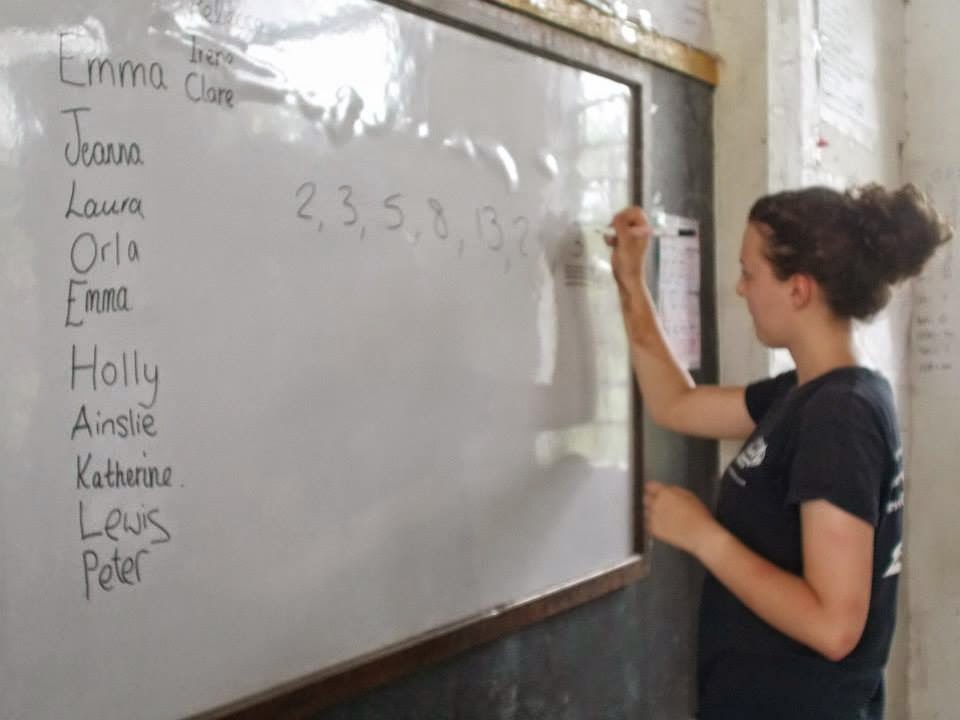 Emma
Irene
Clare
Jeanna
Laura
Orla
Emma
Holly
Ainslie
Katherine.
Lewis
Peter
2, 3, 5, 8, 13, 2